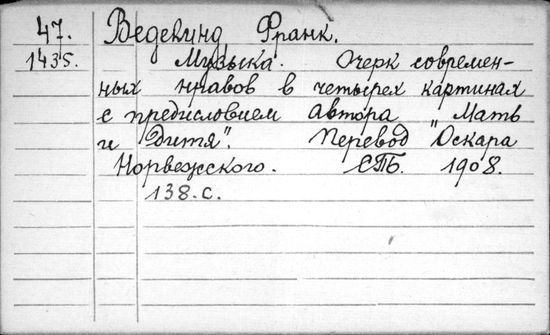 47. Ведекинд Франк.
1435. Музыка. Очерк современ-
ных нравов в четырех картинах
с предисловием автора "Мать
и Дитя". Перевод Оскара
Норвежского. СПБ. 1908.
138.с.